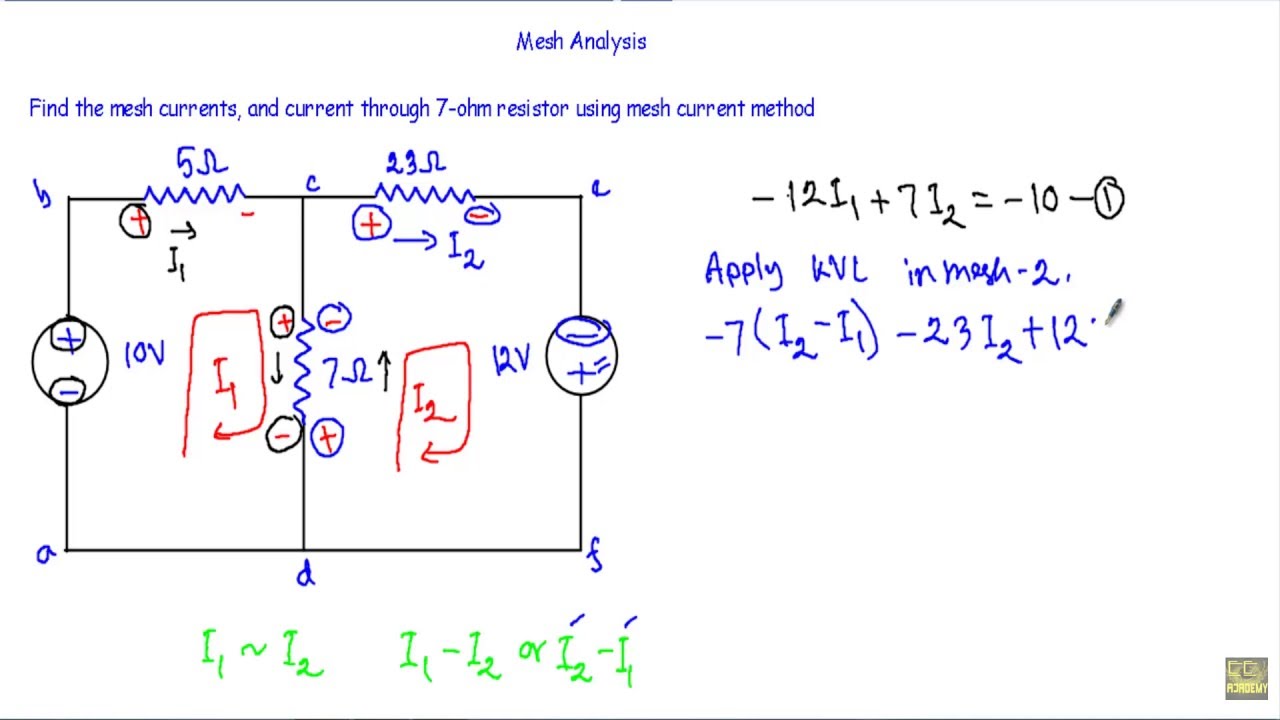 Mesh Analysis
Find the mesh currents, and current through 7-ohm resistor using mesh current method
5Ω
23Ω
b
c
e
+
-
+
-
I₁
I₂
-12I₁ + 7I₂ = -10 - ①
Apply KVL in mesh-2.
-7(I₂ - I₁) - 23I₂ + 12
+
-
10V
I₁
+
-
7Ω
-
+
I₂
12V
-
+
a
d
f
I₁ ~ I₂
I₁ - I₂ or I₂ - I₁
EE
ACADEMY